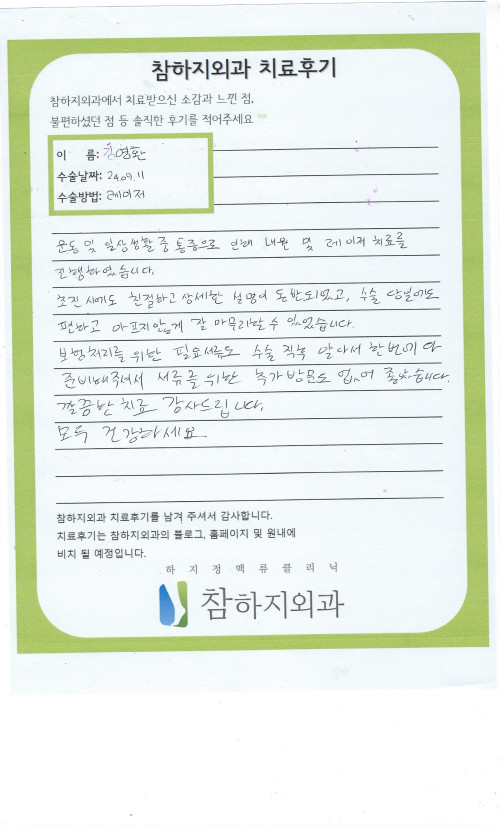 참하지외과 치료후기
참하지외과에서 치료받으신 소감과 느낀 점,
불편하셨던 점 등 솔직한 후기를 적어주세요
이 름: 김영환
수술날짜: 24.09.11
수술방법: 레이저
운동 및 일상생활 중 통증으로 인해 내원 및 레이저 치료를
진행하였습니다.
초진 시에도 친절하고 상세한 설명이 동반되었고, 수술 당일에도
편하고 아프지않게 잘 마무리할 수 있었습니다.
보험처리를 위한 필요서류도 수술 직후 알아서 한번에 다
준비해주셔서 서류를 위한 추가방문도 없어 좋았습니다.
깔끔한 치료 감사드립니다.
모두 건강하세요.
참하지외과 치료후기를 남겨 주셔서 감사합니다.
치료후기는 참하지외과의 블로그, 홈페이지 및 원내에
비치 될 예정입니다.
하 지 정 맥 류 클 리 닉
참하지외과